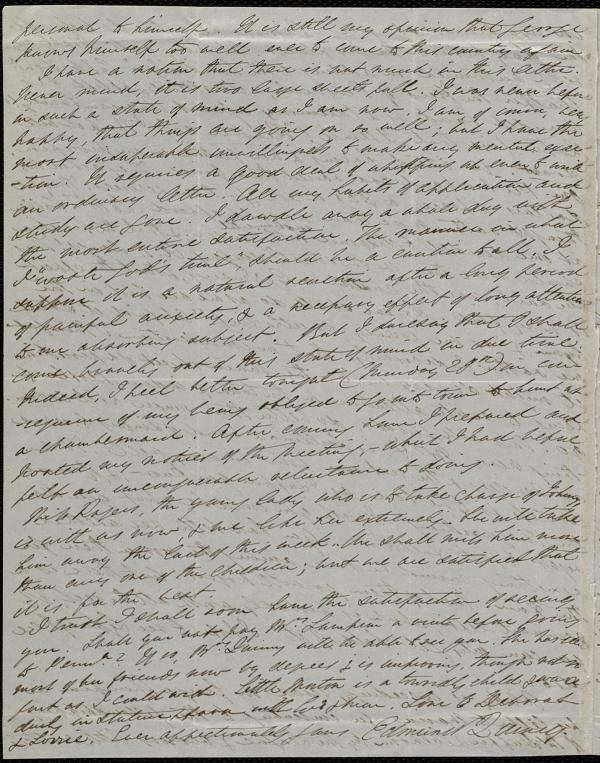 personal to himself. It is still my opinion that George
knows himself too well ever to come to this country again.
I have a notion that there is not much in this letter.
Never mind, it is two large sheets full. I was never before
in such a state of mind as I am now. I am of course, very
happy, that things are going on so well; but I have the
most insuperable unwillingness to make any mental exer-
-tion. It requires a good deal of whipping at even to write
an ordinary letter. All my habits of application and
study are gone. I dawdle away a whole day with
the most entire satisfaction. The manner in which
I "waste God's time" should be a caution to all. I
suppose it is a natural reaction after a long period
of painful anxiety, & a necessary effect of long attention
to one absorbing subject. But I daresay that I shall
come bravely out of this state of mind in due time.
Indeed, I feel better tonight (Thursday 28th) in con-
sequence of my being obliged to go into town to hunt up
a chambermaid. After coming home I prepared and
posted my notices of the Meeting, - which I had before
felt an unconquerable reluctance to doing.
Miss Rogers, the young lady who is to take charge of Johnny
is with us now, & we like her extremely. She will take
him away the last of this week. We shall miss him more
than any one of the children; but we are satisfied that
it is for the best.
I trust I shall soon have the satisfaction of seeing
you. Shall you not pay Mrs a visit before going
to ? If so, Mrs Quincy will be able to see you. She has seen
most of her friends now by degrees & is improving, though not so
fast as I could wish. Little Morton is a child &
in stature & favor with God & man. Love to Deborah
& Lizzie. Ever affectionately yours Edmund Quincy.